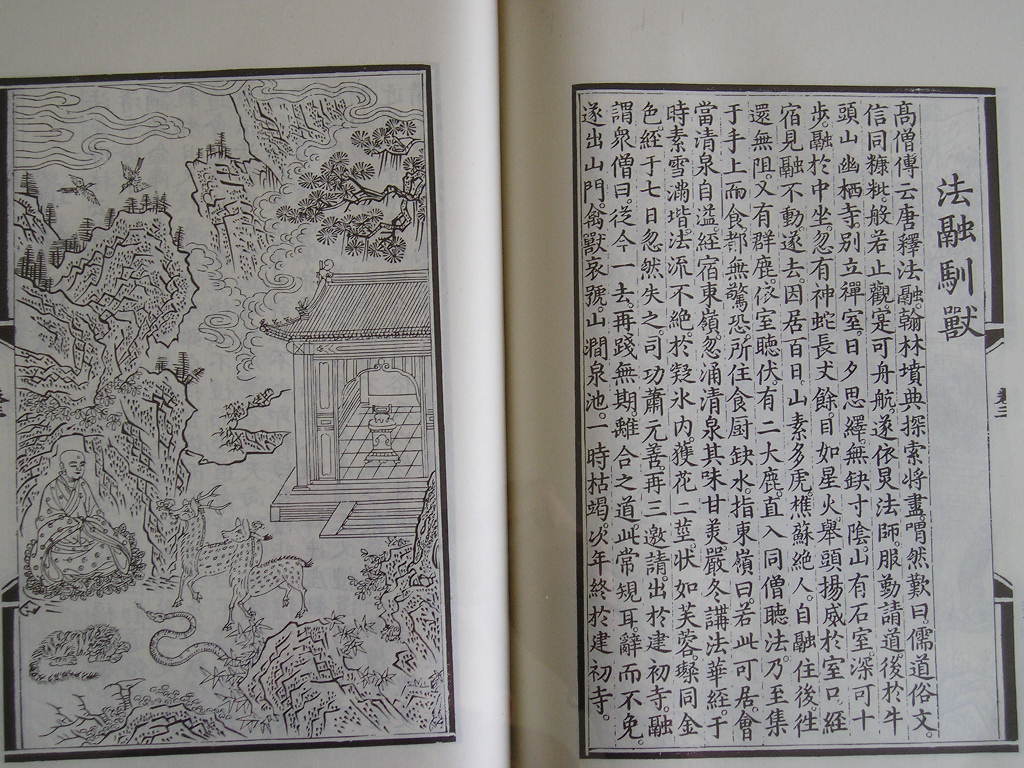 法融馴獸
高僧傳云唐釋法融翰林墳典探索將盡喟然歎曰儒道俗文。
信同糠粃。般若止觀。寔可舟航。遂依炅法師。服勤請道。後於牛
頭山幽栖寺。別立禪室。日夕思繹。無缺寸陰。山有石室。深可十
步。融於中坐。忽有神蛇長丈餘。目如星火。舉頭揚威。於室口。經
宿見融不動遂去。因居百日。山素多虎。樵蘇絶人。自融住後。徃
還無阻。又有群鹿。依室聽伏。有二大鹿。直入同僧聽法。乃至集
于手上而食。都無驚恐。所住食厨缺水。指東嶺曰。若此可居。會
當清泉自溢。經宿東嶺。忽涌清泉。其味甘美。嚴冬講法華經于
時素雪滿堦。法流不絶。於凝氷內。獲花二莖。狀如芙蓉。璨同金
色。經于七日。忽然失之。司功蕭元善。再三邀請。出於建初寺。融
謂衆僧曰。從今一去。再踐無期。離合之道。此常規耳。辭而不免。
遂出山門。禽獸哀號。山澗泉池。一時枯竭。次年終於建初寺。